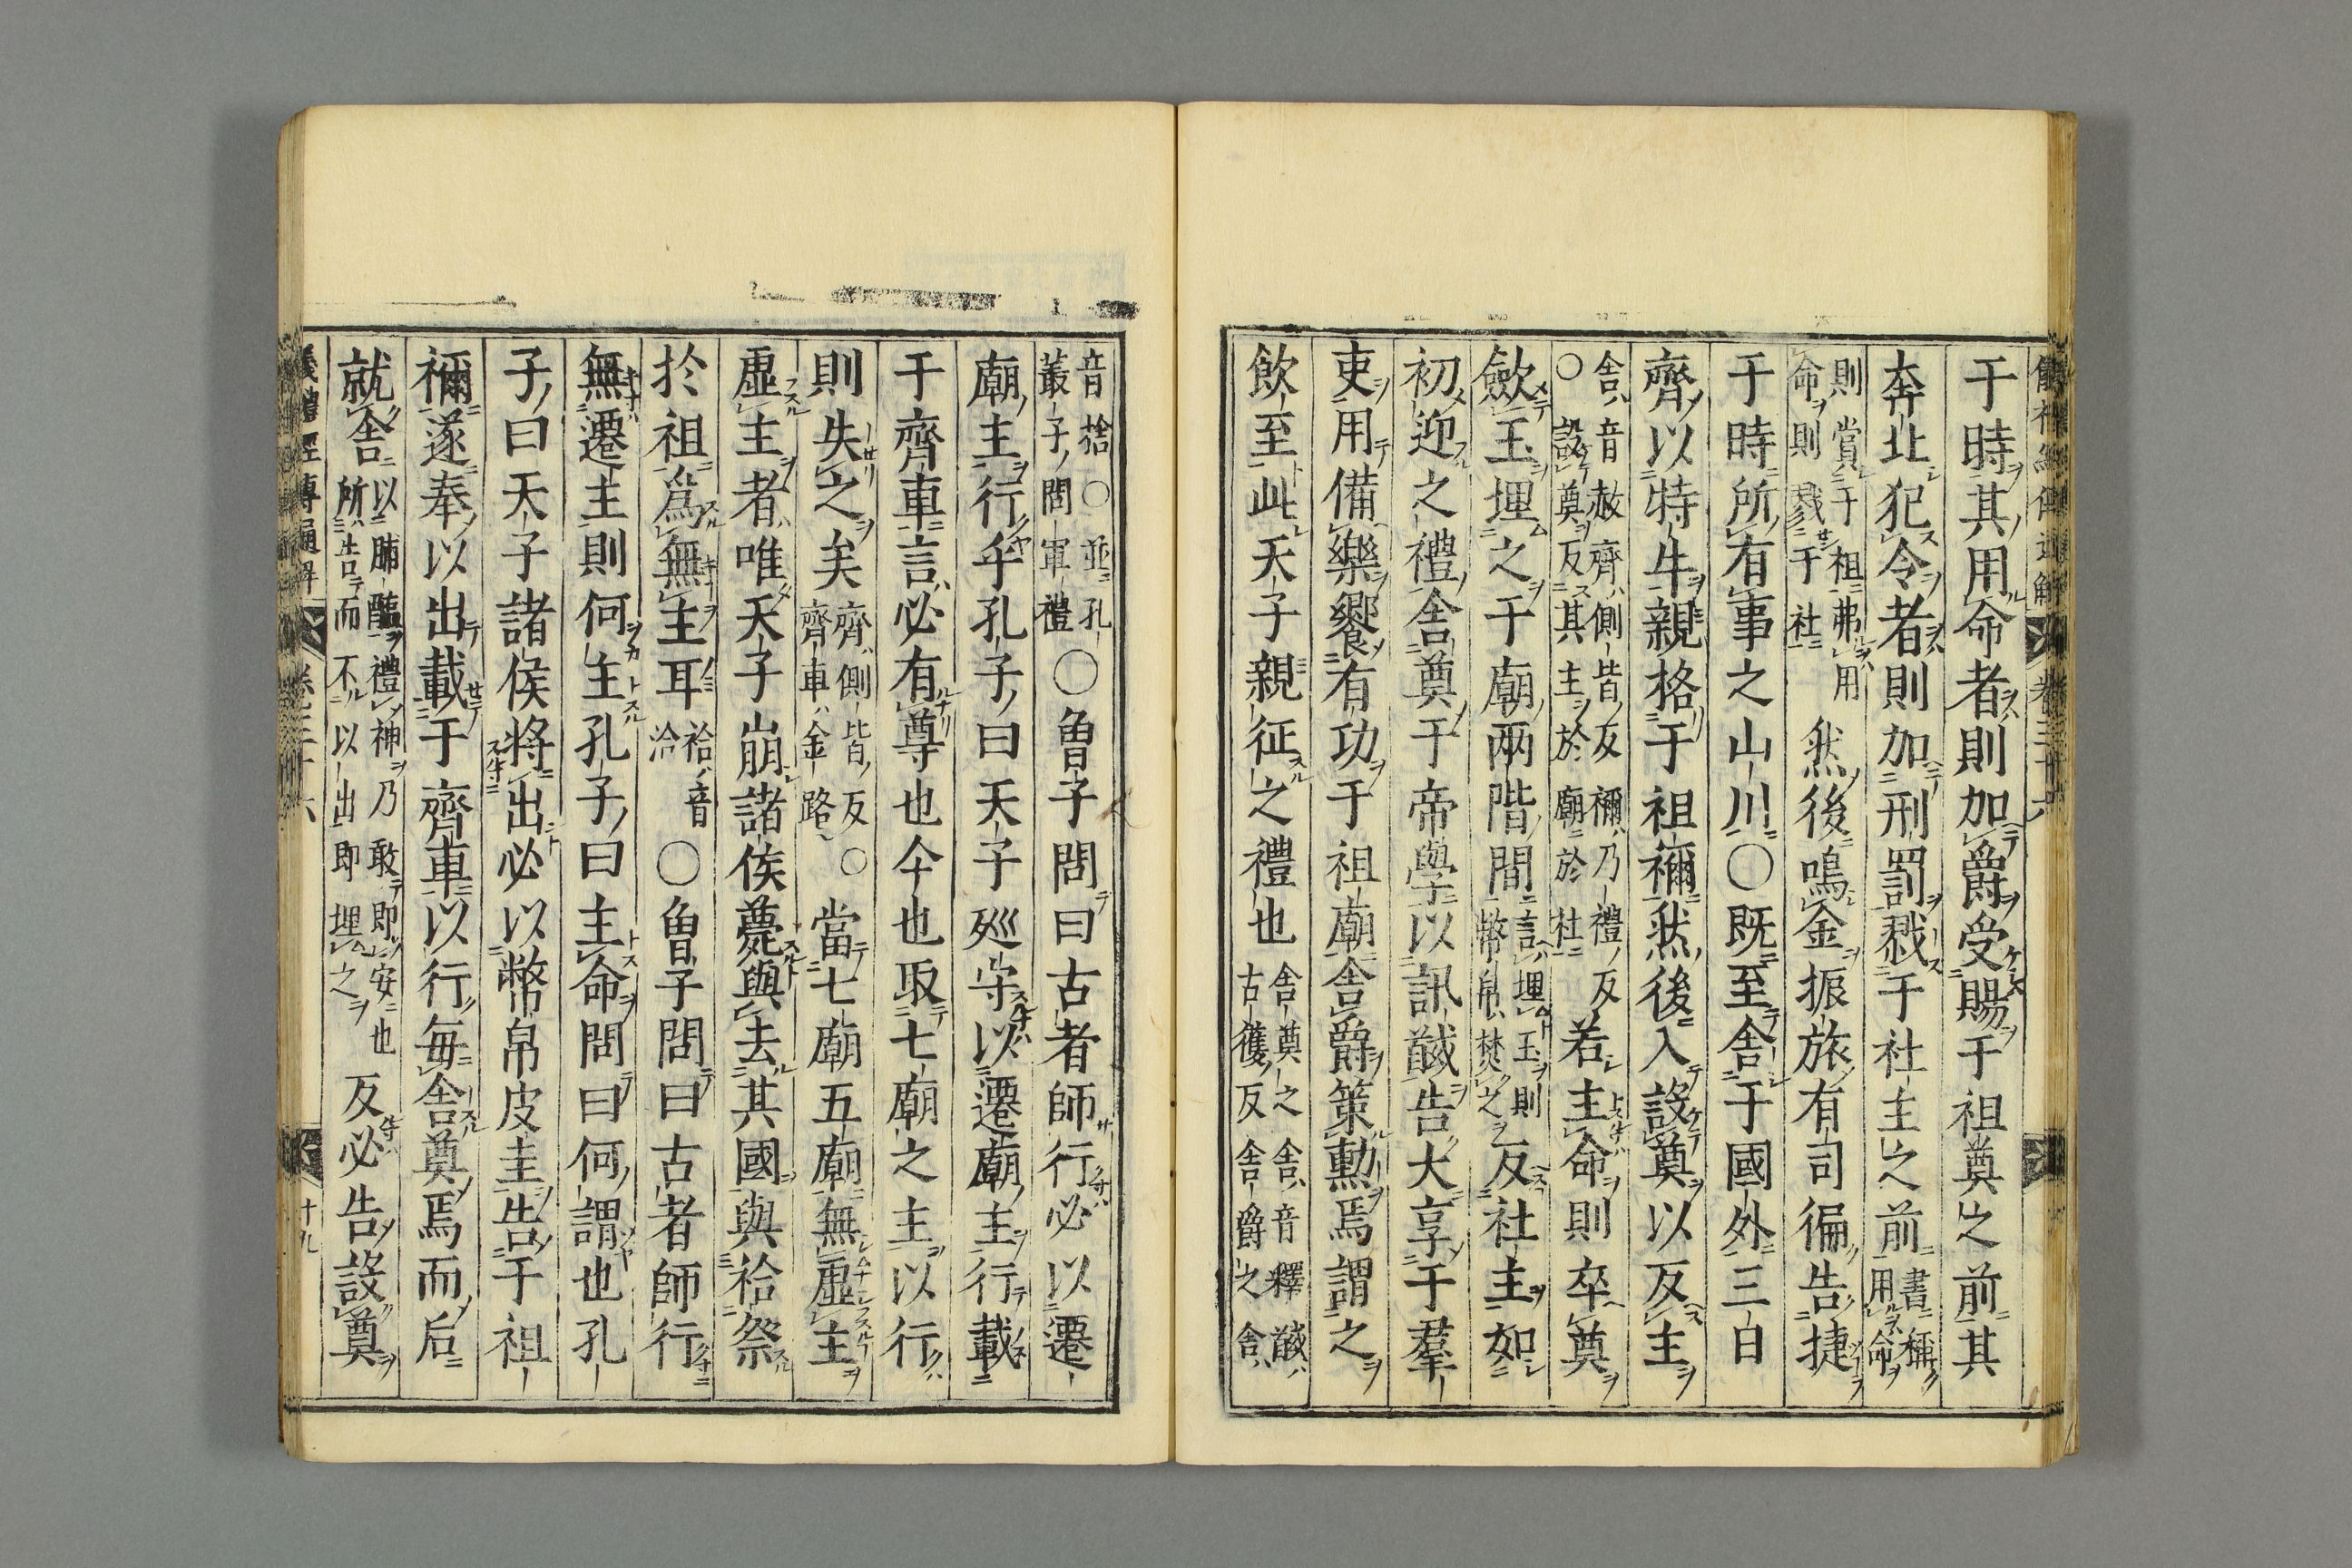 儀禮經傳通解 卷三十六
于時其用命者則加爵受賜于祖奠之前其
奔北犯令者則加刑罰戮于社主之前
書稱
用命
則賞于祖弗用
命則戮于社
然後鳴金振旅有司徧告捷
于時所有事之山川〇既至舍于國外三日
齊以特牛親格于祖禰然後入設奠以反主
舍音赦齊側皆反禰乃禮反
〇設奠反其主於廟於社
若主命則卒奠
斂玉埋之于廟兩階間
言埋玉則
幣帛焚之
反社主如
初迎之禮舍奠于帝學以訊馘告大享于羣
吏用備樂饗有功于祖廟舍爵策勳焉謂之
飲至此天子親征之禮也
舍奠之舍音釋馘
古獲反舍爵之舍
音捨〇並孔
叢子問軍禮
〇曾子問曰古者師行必以遷
廟主行乎孔子曰天子廵守以遷廟主行載
于齊車言必有尊也今也取七廟之主以行
則失之矣
齊側皆反
齊車金路
〇當七廟五廟無虛主
虛主者唯天子崩諸侯薨與去其國與祫祭
於祖爲無主耳
祫音
洽
〇曾子問曰古者師行
無遷主則何主孔子曰主命問曰何謂也孔
子曰天子諸侯將出必以幣帛皮圭告于祖
禰遂奉以出載于齊車以行每舍奠焉而后
就舍
以脯醢禮神乃敢即安也
所告而不以出即埋之
反必告設奠
儀禮經傳通解 卷三十六 十九